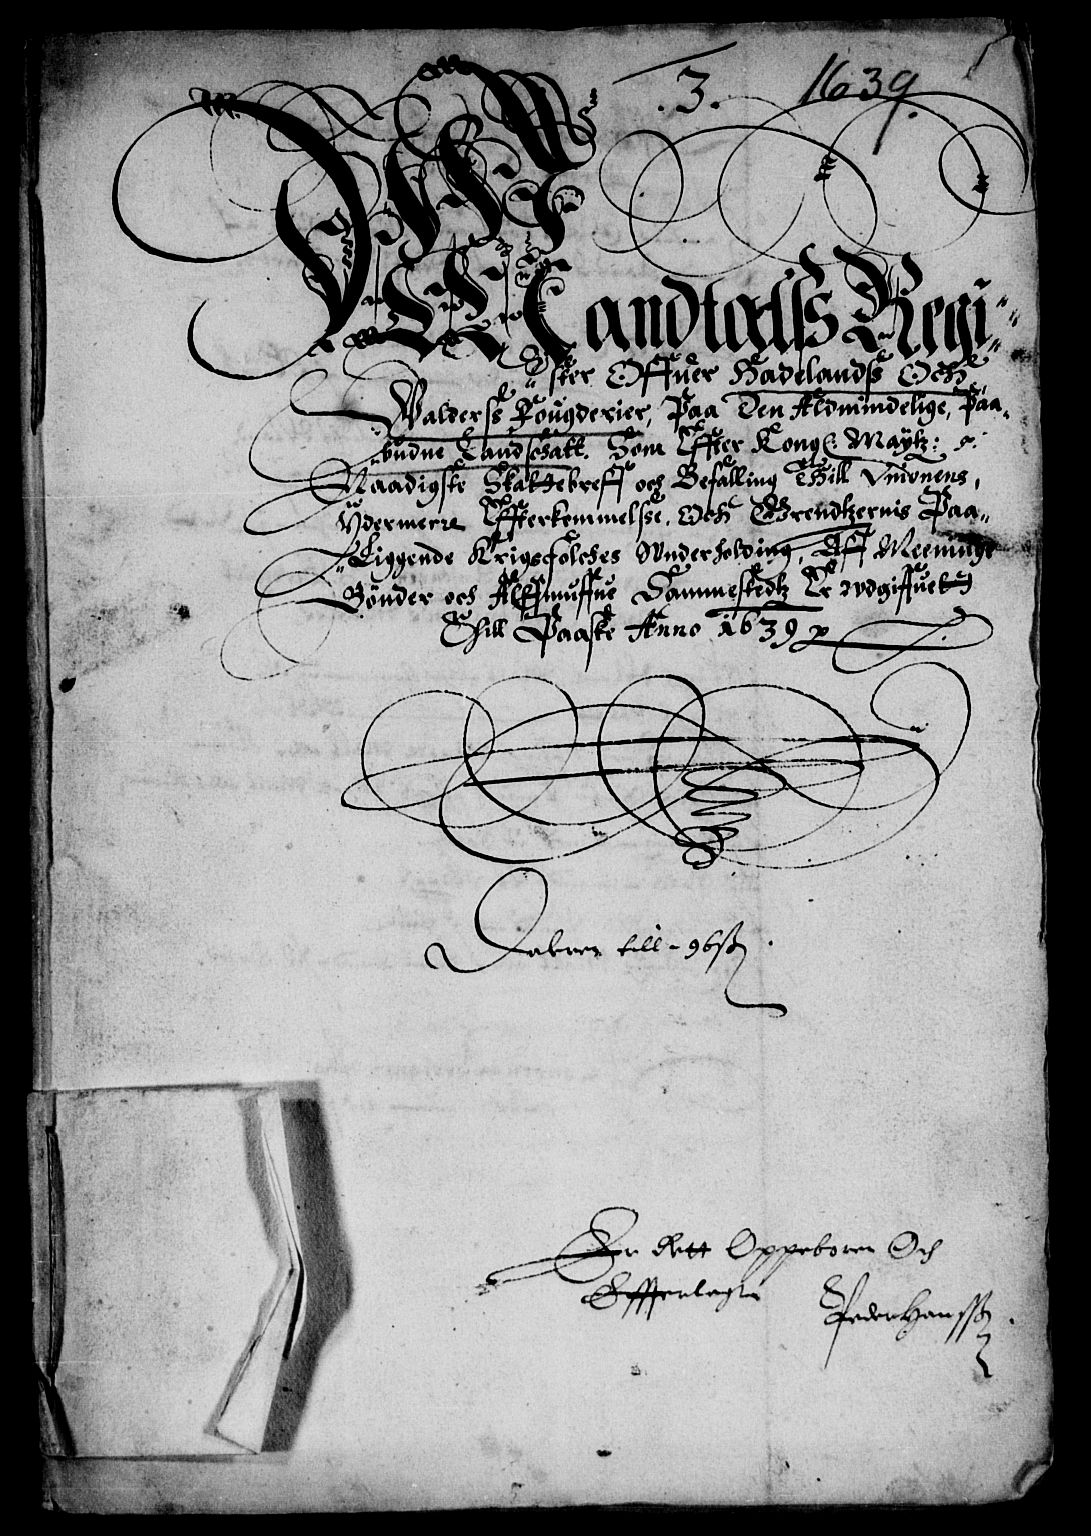 .3. 1639.
Mandtalls Regi-
ster Offuer Hadelandß Och
Walderß Fougderier, Paa Den Aldmindelige, Paa-
budne Landschatt. Som Effter Kong: Maytz:
Naadigste Skattebreff och Befalling Thill Vnionens,
Ydermerre Effterkommelse, Och Grendtzernis Paa-
Liggende Krigsfolches Vnderholding, Aff Meeninge
Bönder och Allmuffue Sammestedtz Er vdgiffuet
Thill Paaske Anno 1639
Daler till - 96 ß
Er Rett Oppeboren Och
Efferlagt
Peder Hanssß